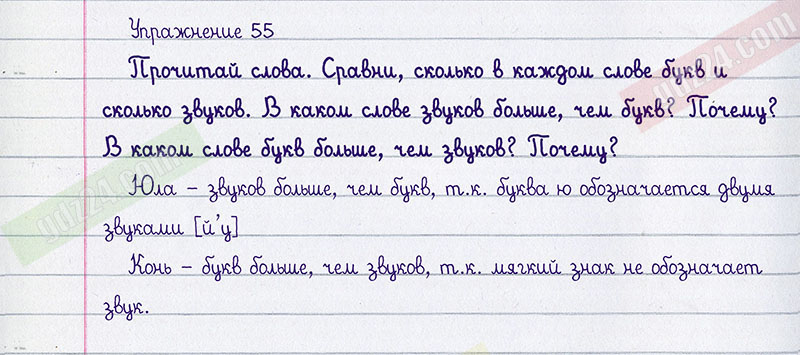 Упражнение 55
Прочитай слова. Сравни, сколько в каждом слове букв и
сколько звуков. В каком слове звуков больше, чем букв? Почему?
В каком слове букв больше, чем звуков? Почему?
Юла – звуков больше, чем букв, т.к. буква ю обозначается двумя
звуками [й'у]
Конь – букв больше, чем звуков, т.к. мягкий знак не обозначает
звук.
gdzz4.com
gdzz4.com